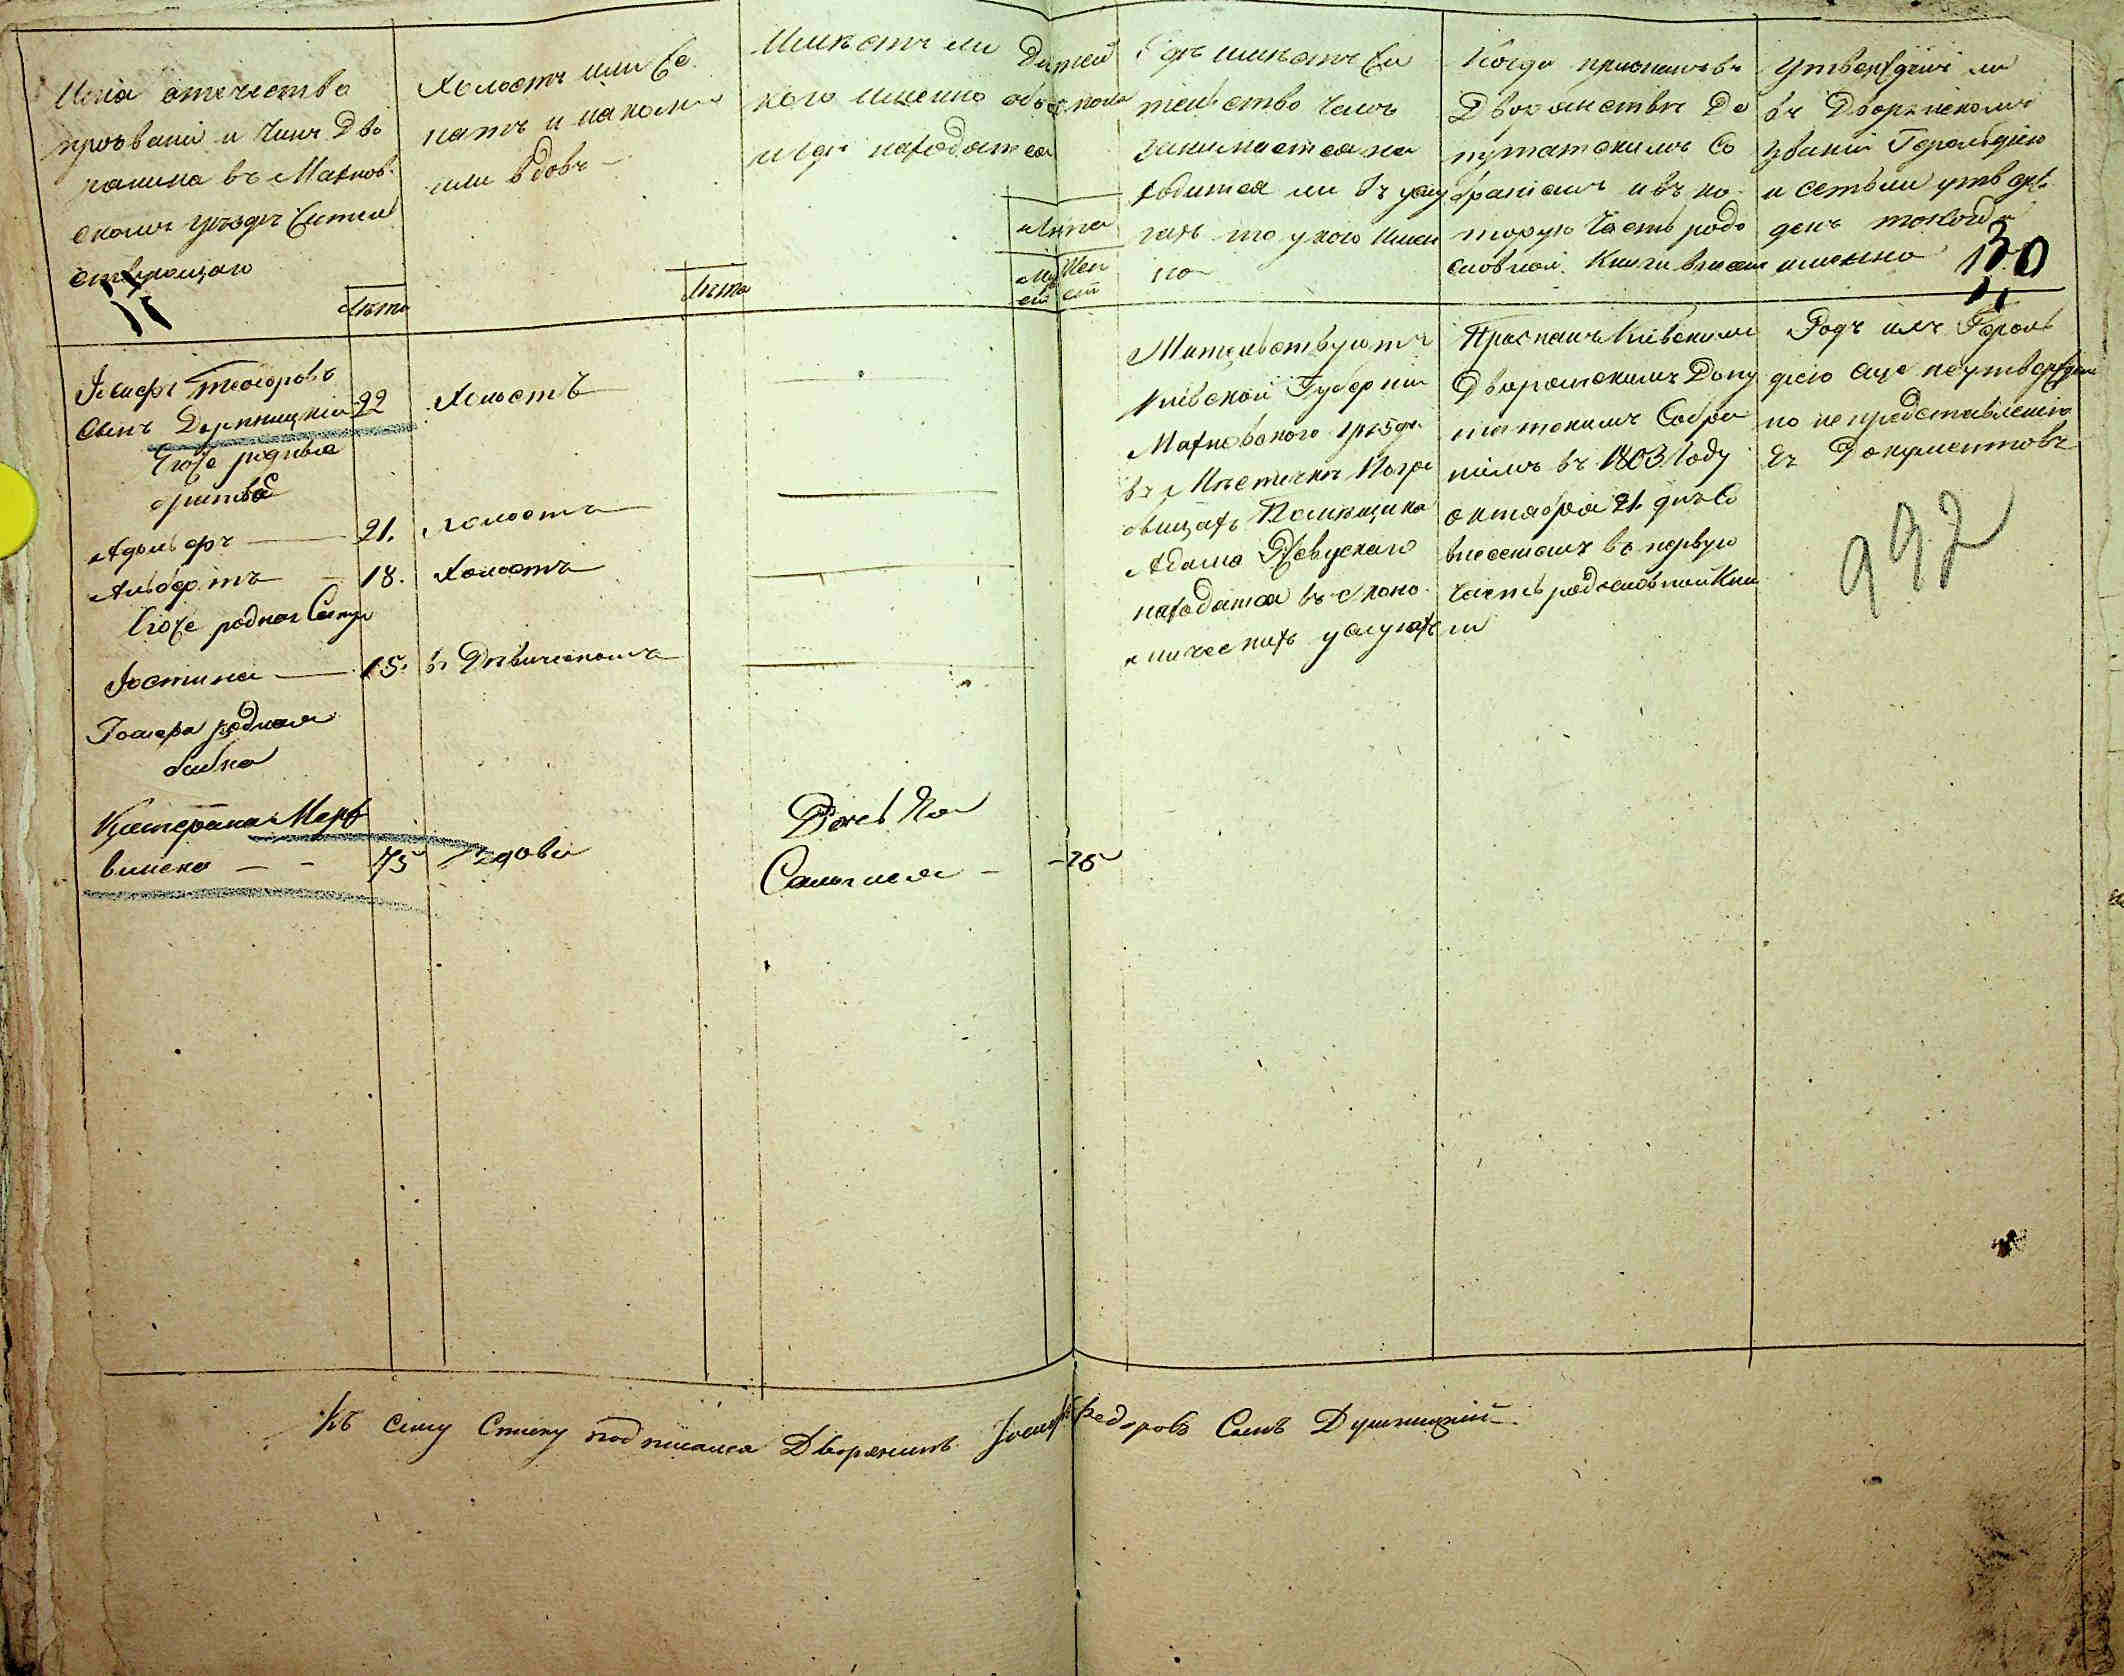 Имiя отечество
прозванiе и Чинъ Дво
рянина въ Махнов
скомъ уѣздѣ Жител
ствующаго
Лѣта
Холостъ или Же
натъ и на комъ
или вдовъ —
Лѣта
Имѣетъ ли Детей
кого именно обоего пола
и где находятся
Лѣта
Муж
ск
Жен
ск
Где имѣетъ Жи
тельство чемъ
занимается на
ходится ли въ услу
гахъ то у кого имен
но
Когда признанъ въ
Дворянствѣ Де
путатскимъ Со
бранiемъ и въ ко
торую Часть родо
словной Книги внесен
Утвержденъ ли
въ Дворянскомъ
званiи Герольдiею
и естьли утверж
денъ то когда
именно
130
Iосифъ Теодоровъ
Сынъ 22 Холостъ
Егоже родные
братья
Адольфъ — 21. холостъ
Альбертъ — 18. Холостъ
Егоже родная Сестра
Юстина — 15. въ Девическомъ
Iосифа родная
бабка
Катерина
75 Вдова
Дочь
— 26
Жительствуютъ
Кiевской Губернiи
Махновского уѣзда
въ Мѣстечкѣ Погре
бищахъ Помѣщика
Адама Ржевускаго
находятся въ эконо
мическихъ услугахъ
Признанъ Кiевскимъ
Дворянскимъ Депу
татскимъ Собра
нiемъ въ 1803 Году
октября 21. дня Со
внесенiемъ въ первую
Часть родословной Кни
ги
Родъ ихъ Героль
дiею еще не утвержденъ
по непредставленiю
Документовъ
992
Къ сему Списку подписался Дворянинъ Iосифъ Федоровъ Сынъ